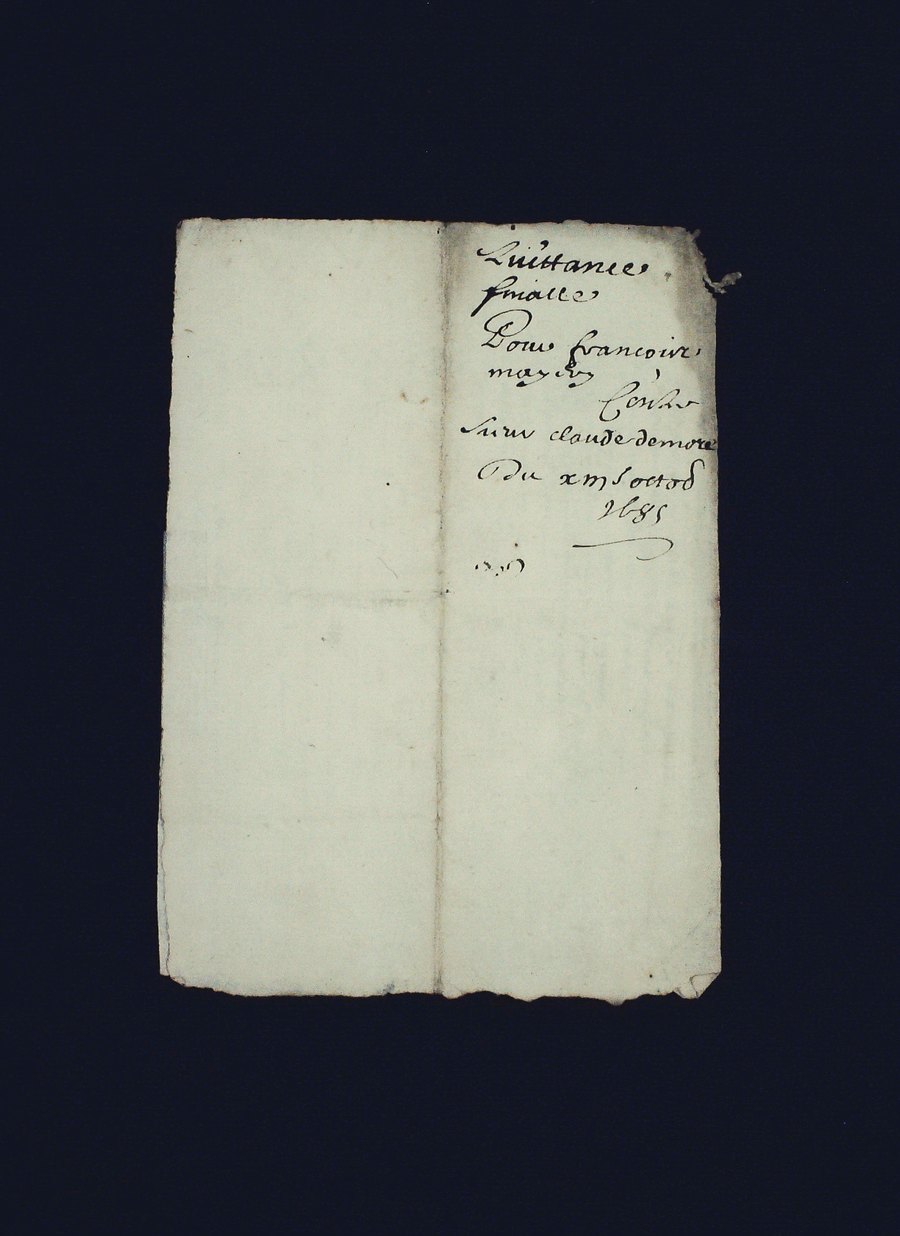 Quittance
finalle
Pour francois
mayeny
Contre
Sieur claude demore
Du xiii octob
1685